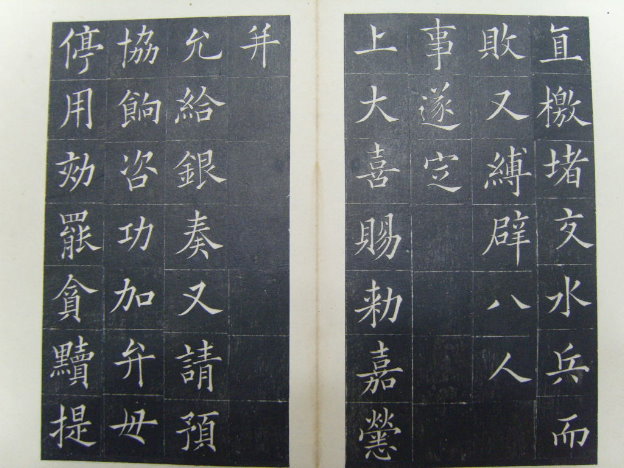 直檄堵交水兵而
敗又縛辟八人
事遂定
上大喜賜勑嘉憥
并
允給銀奏又請預
協餉咨功加弁毋
停用効罷貪黷提